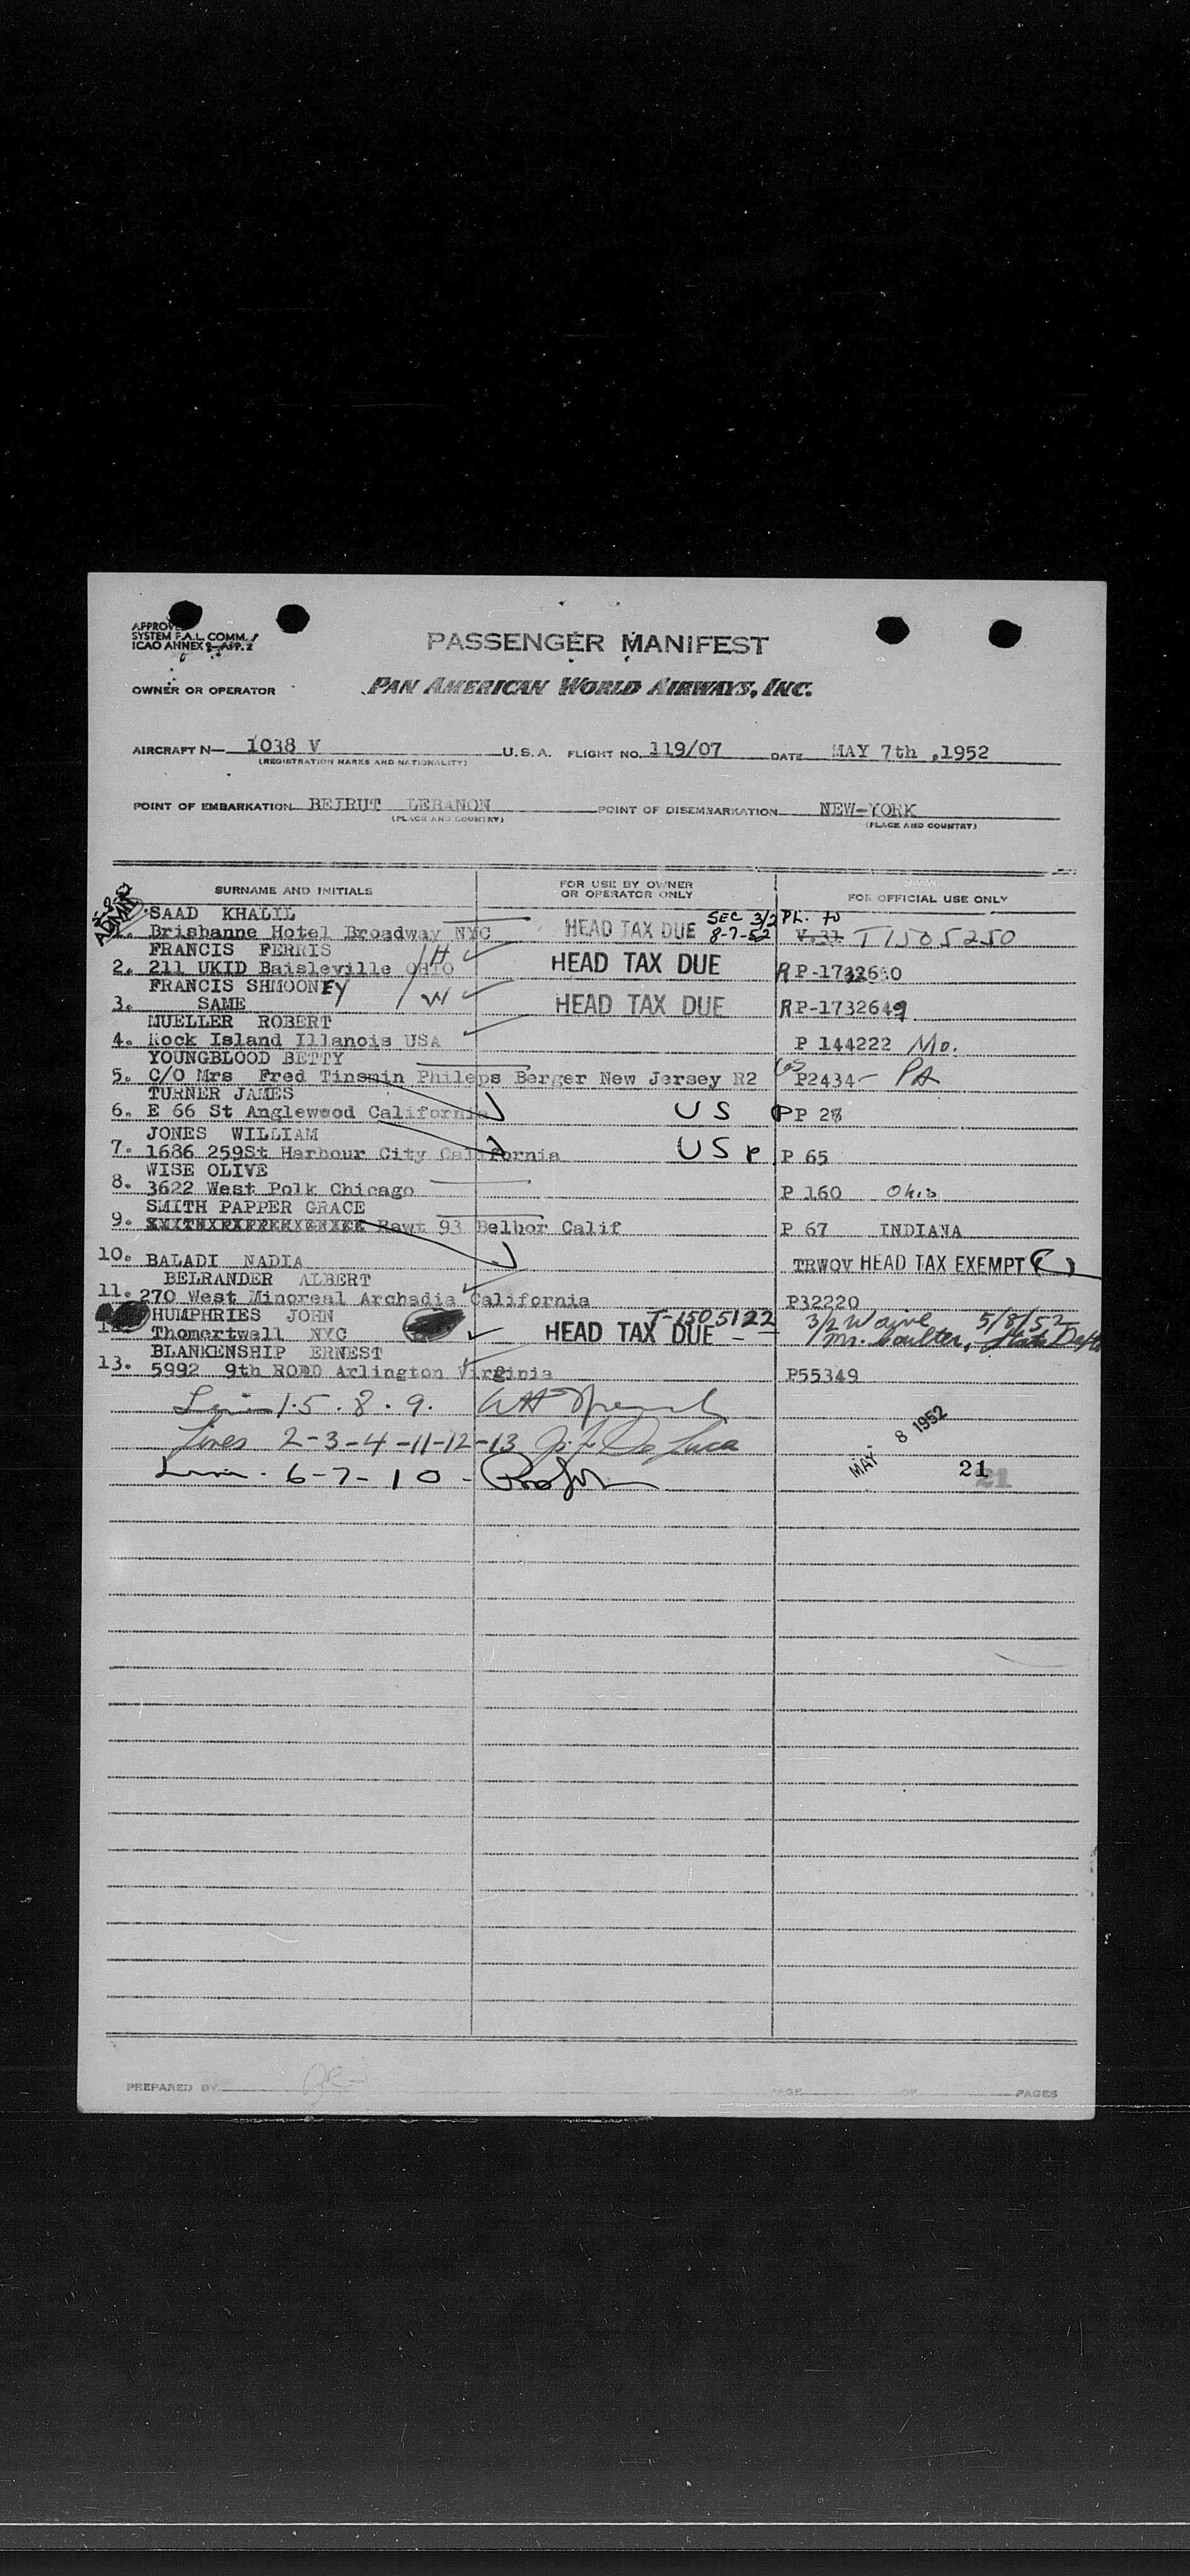 APPROVED
SYSTEM F.A.L. COMM.
ICAO ANNEX 9-APP. 2
PASSENGER MANIFEST
OWNER OR OPERATOR PAN AMERICAN WORLD AIRWAYS, INC.
AIRCRAFT N— 1038 V U.S.A. FLIGHT NO. 119/07 DATE MAY 7th ,1952
(REGISTRATION MARKS AND NATIONALITY)
POINT OF EMBARKATION BEIRUT LEBANON POINT OF DISEMBARKATION NEW-YORK
(PLACE AND COUNTRY) (PLACE AND COUNTRY)
SURNAME AND INITIALS FOR USE BY OWNER OR OPERATOR ONLY FOR OFFICIAL USE ONLY
ADMIT
SAAD KHALIL SEC 3/2 Ph. to
1. Brishanne Hotel Broadway NYC HEAD TAX DUE 8-7-52 V.31 T1505250
FRANCIS FERRIS
2. 211 UKID Baisleville OHIO H HEAD TAX DUE RP-1732660
FRANCIS SHMOONEY
3. SAME W HEAD TAX DUE RP-1732649
MUELLER ROBERT
4. Rock Island Illanois USA P 144222 Mo.
YOUNGBLOOD BETTY
5. C/O Mrs Fred Tinsmin Phileps Berger New Jersey R2 US P2434- PA
TURNER JAMES
6. E 66 St Anglewood California US PP 28
JONES WILLIAM
7. 1686 259St Harbour City California US P P 65
WISE OLIVE
8. 3622 West Polk Chicago P 160 Ohio
SMITH PAPPER GRACE
9. Rawt 93 Belbor Calif P 67 INDIANA
10. BALADI NADIA TRWOV HEAD TAX EXEMPT
BELRANDER ALBERT
11. 270 West Minoreal Archadia California P32220
HUMPHRIES JOHN T-1505122 3/2 Waive 5/8/52
Thomertwall NYC HEAD TAX DUE -- Mr. Coulter, State Dept
BLANKENSHIP ERNEST
13. 5992 9th ROAD Arlington Virginia P55349
1.5.8.9.
Lines 2-3-4-11-12-13 J. F. De Luca
6-7-10-
MAY 8 1952
21
21
PREPARED BY PAGE OF PAGES